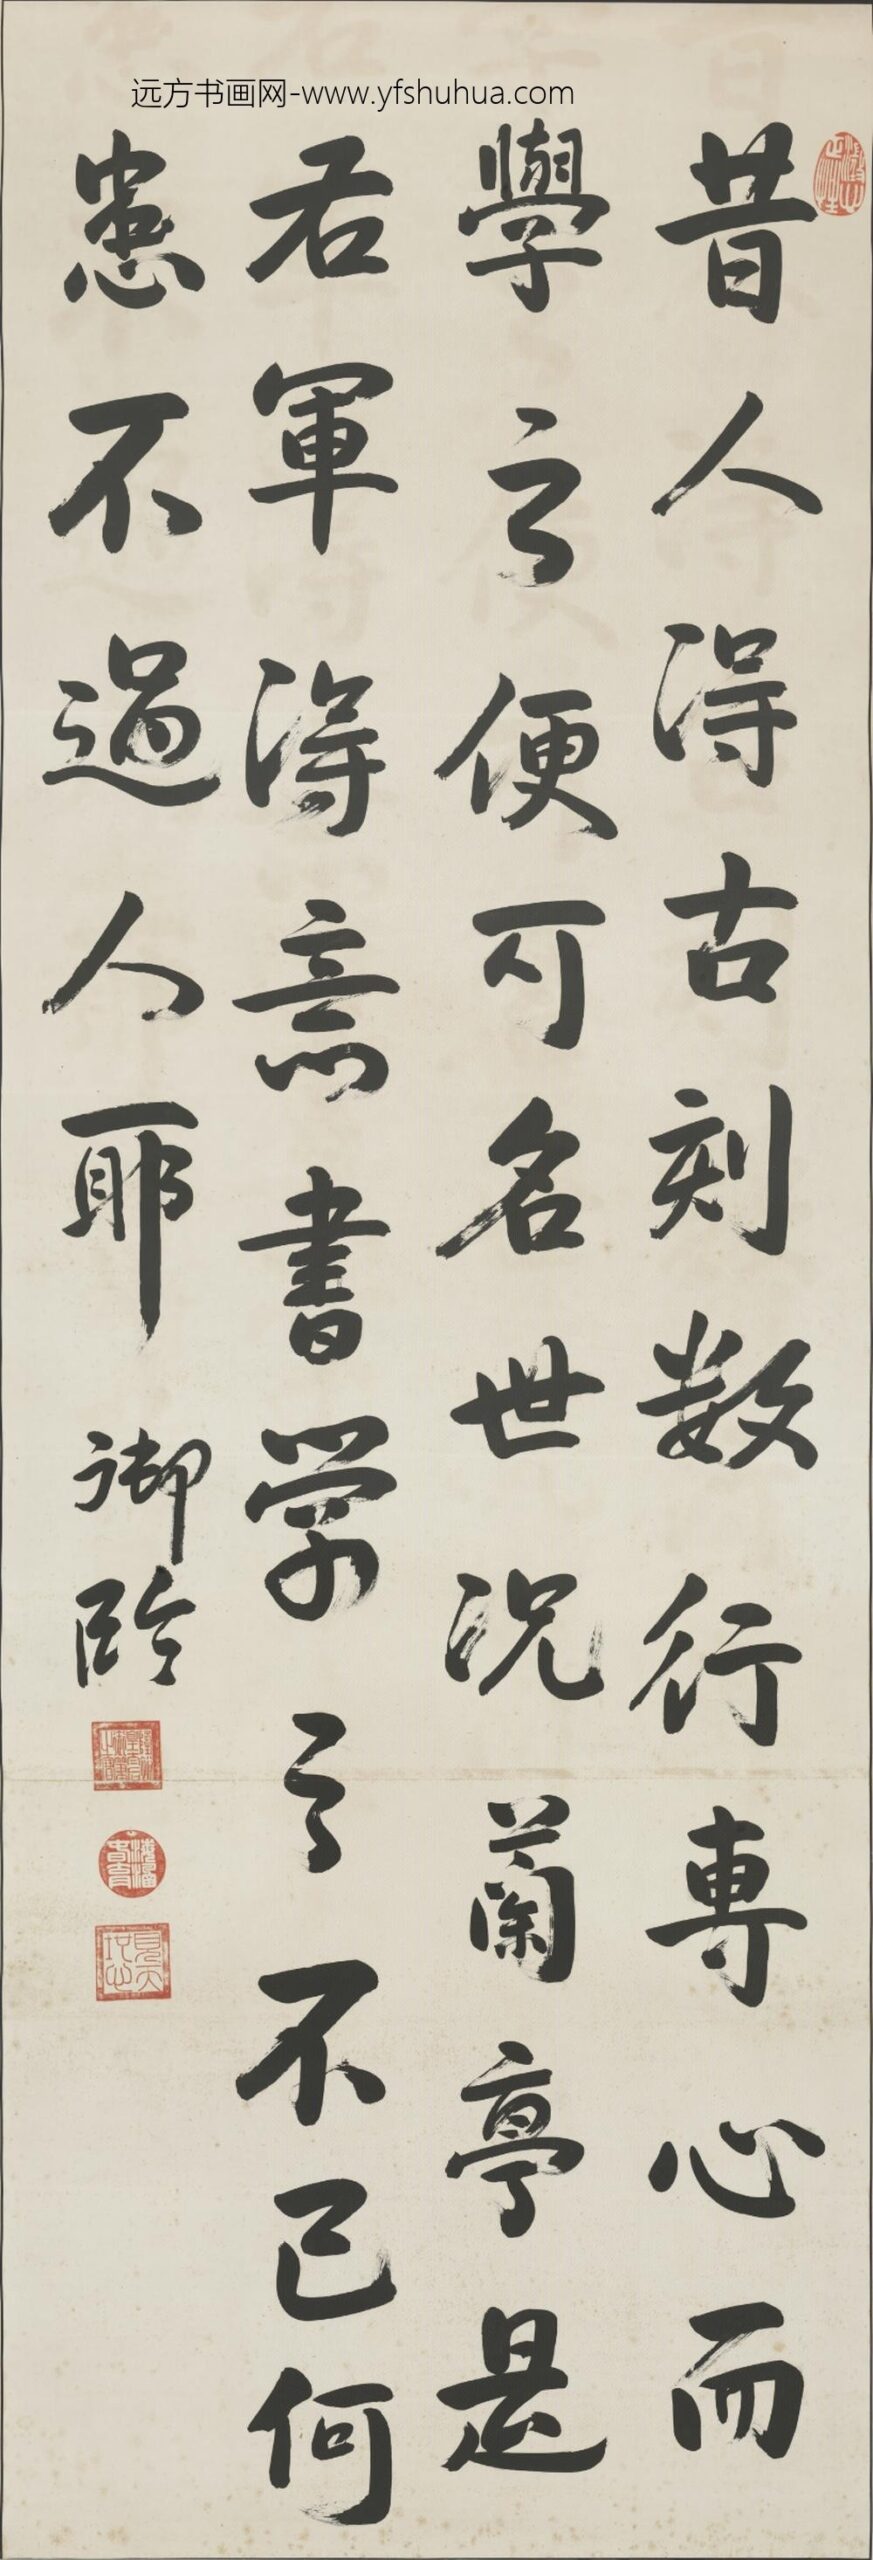 远方书画网-www.yfshuhua.com
昔人得古刻数行専心而
學之便可名世况蘭亭是
右軍得意書学之不已何
患不過人耶
御臨